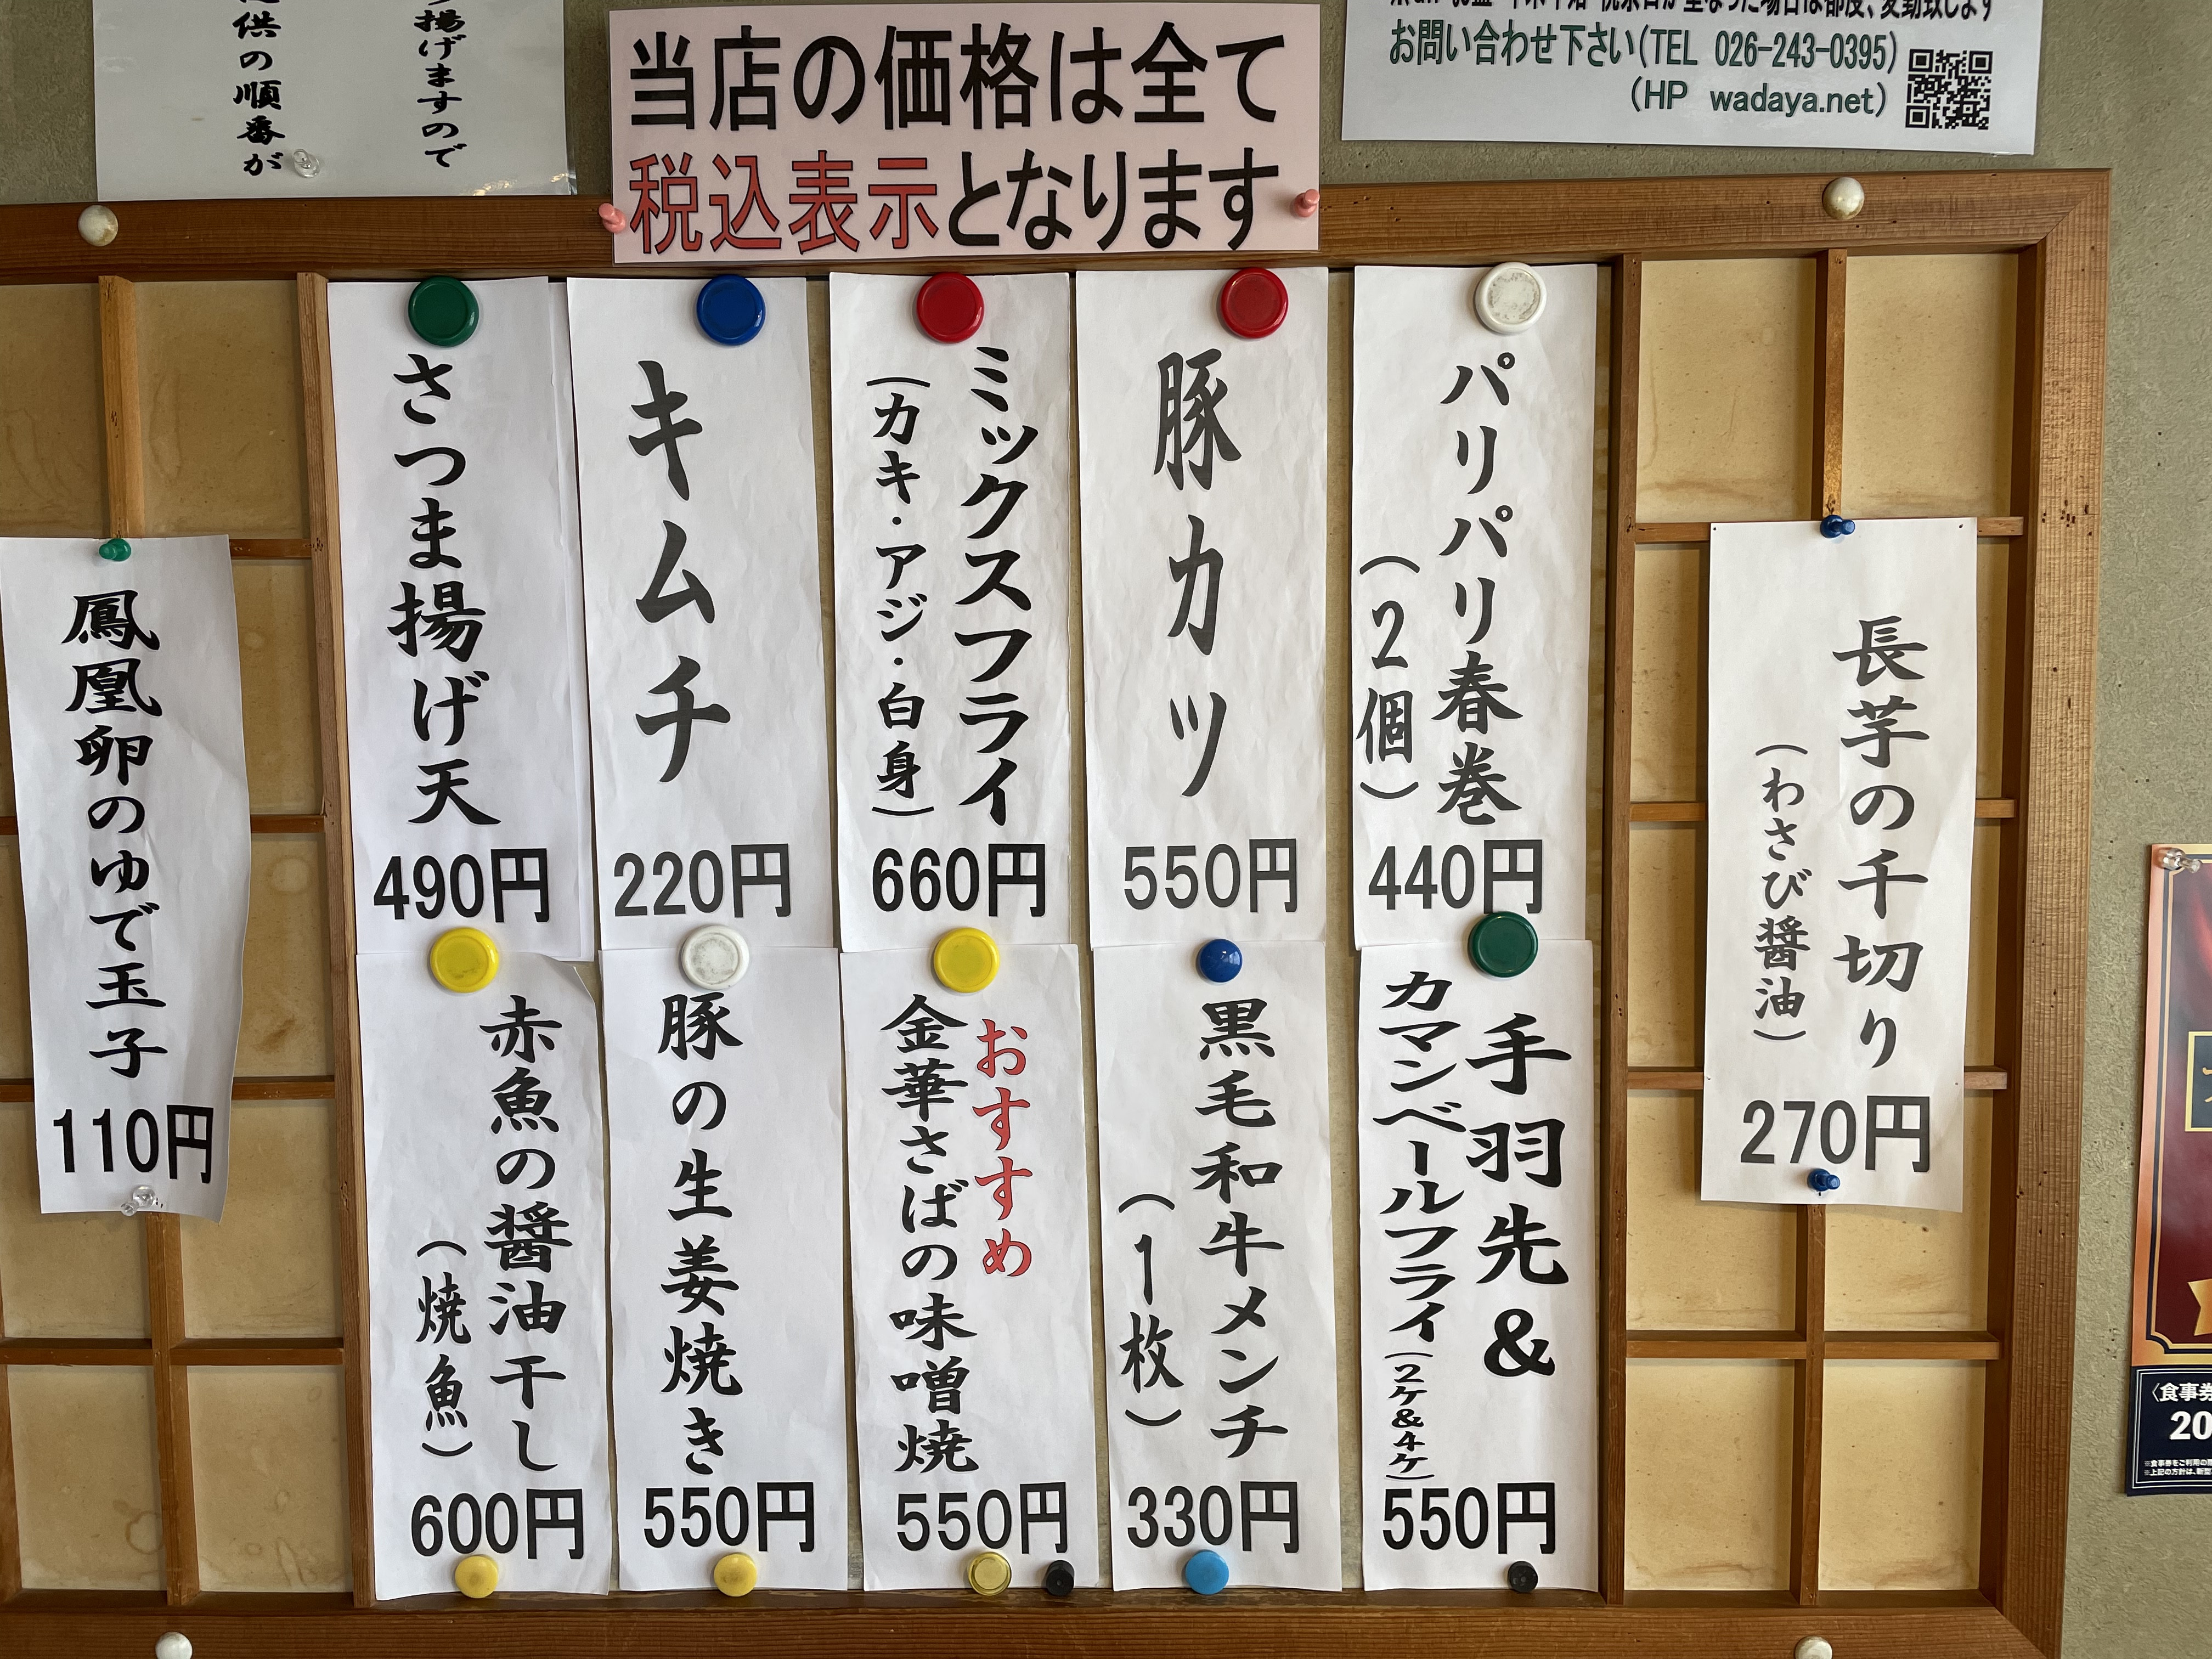 揚げますので
供の順番が
当店の価格は全て
税込表示となります
お問い合わせ下さい(TEL 026-243-0395)
(HP wadaya.net)
長芋の千切り
(わさび醤油)
270円
パリパリ春巻
(2個)
440円
豚カツ
550円
ミックスフライ
(カキ・アジ・白身)
660円
キムチ
220円
さつま揚げ天
490円
手羽先&
カマンベールフライ(2ケ&4ケ)
550円
黒毛和牛メンチ
(1枚)
330円
おすすめ
金華さばの味噌焼
550円
豚の生姜焼き
550円
赤魚の醤油干し
(焼魚)
600円
鳳凰卵のゆで玉子
110円
〈食事券
20